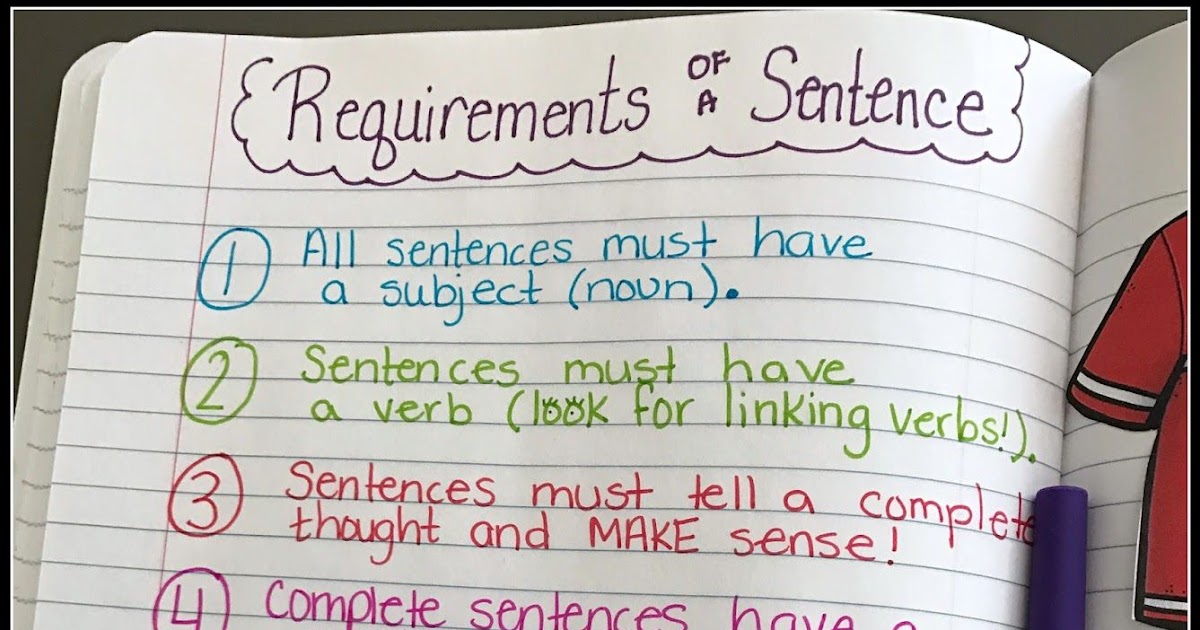 Requirements OF A Sentence
1 All sentences must have
a subject (noun).
2 Sentences must have
a verb (look for linking verbs!).
3 Sentences must tell a complete
thought and MAKE sense!
4 Complete sentences have a